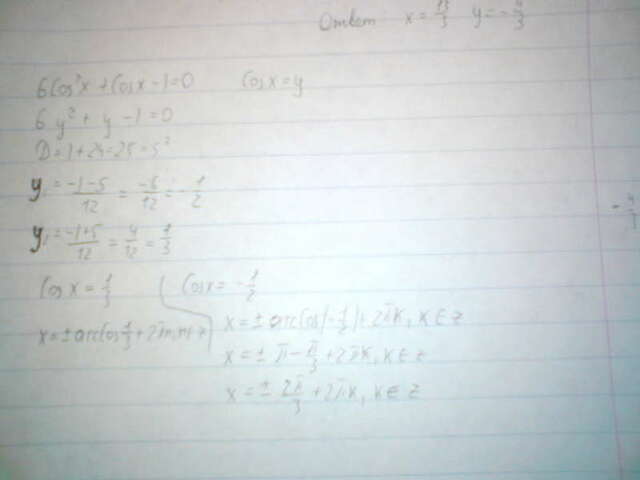 Ответ x = 13/3 y = -4/3
6Cos²x + Cosx - 1 = 0 Cosx = y
6y² + y - 1 = 0
D = 1 + 24 = 25 = 5²
y₁ = (-1-5)/12 = -6/12 = -1/2
y₂ = (-1+5)/12 = 4/12 = 1/3
Cos x = 1/3 Cosx = -1/2
x = ± arccos 1/3 + 2πn, n∈z
x = ± arccos(-1/2) + 2πk, k∈z
x = ± π - π/3 + 2πk, k∈z
x = ± 2π/3 + 2πk, k∈z